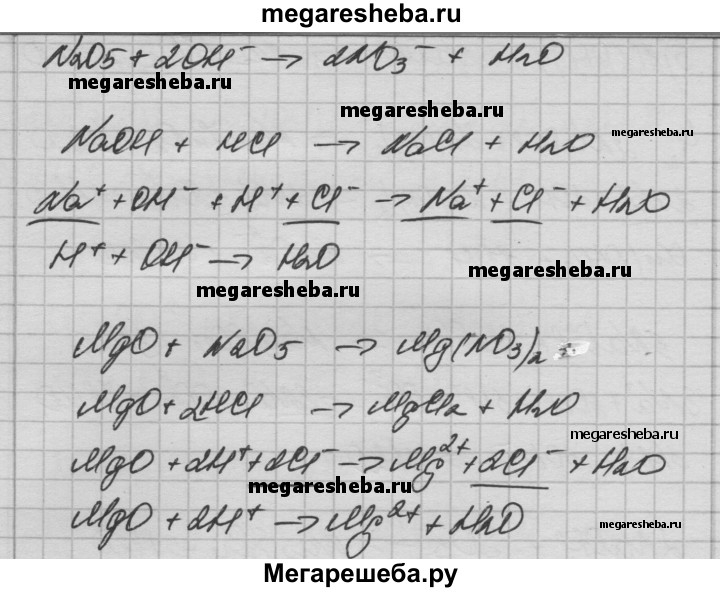 megaresheba.ru
N₂O5 + 2OH⁻ → 2NO₃⁻ + H₂O
megaresheba.ru
megaresheba.ru
megaresheba.ru
NaOH + HCl → NaCl + H₂O
Na⁺ + OH⁻ + H⁺ + Cl⁻ → Na⁺ + Cl⁻ + H₂O
H⁺ + OH⁻ → H₂O
megaresheba.ru
megaresheba.ru
MgO + N₂O5 → Mg(NO₃)₂
MgO + 2HCl → MgCl₂ + H₂O
megaresheba.ru
MgO + 2H⁺ + 2Cl⁻ → Mg²⁺ + 2Cl⁻ + H₂O
megaresheba.ru
MgO + 2H⁺ → Mg²⁺ + H₂O
megaresheba.ru
Мегарешеба.ру